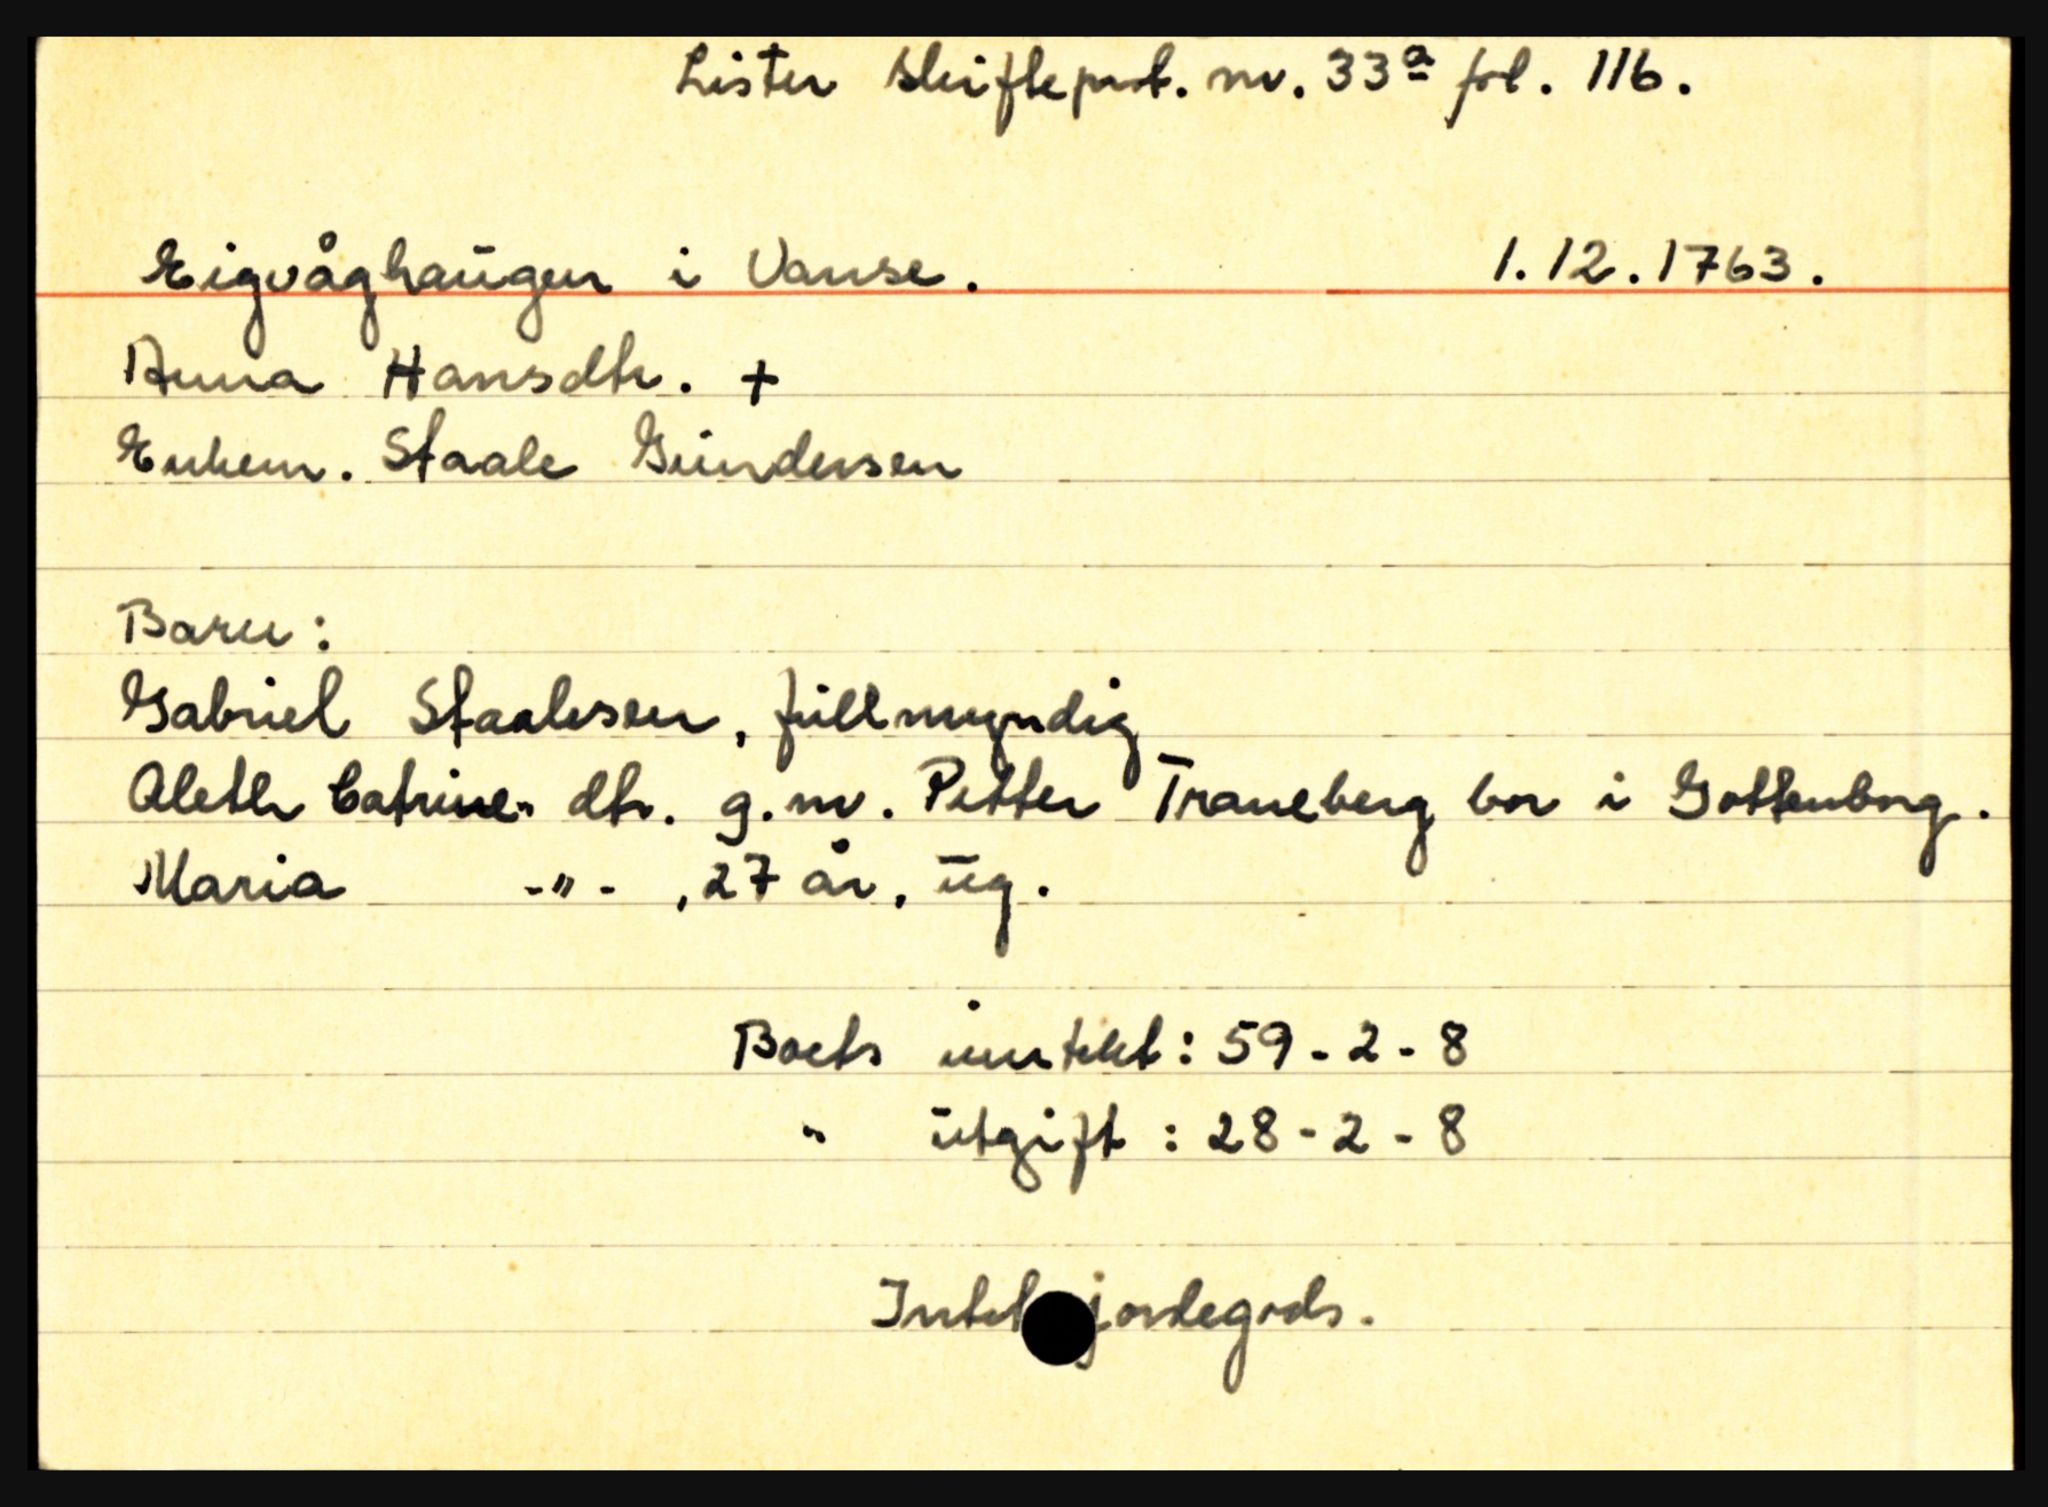 Lister skifteprot. nr. 33ª fol. 116.
Eigvåghaugen i Vanse. 1.12.1763.
Anna Hansdtr. +
Enkem. Staale Gundersen
Barn:
Gabriel Staalesen, fullmyndig
Aleth Catrine " dtr. g.m. Petter Traneberg bor i Gottenborg.
Maria -"- , 27 år, ug.
Boets inntekt: 59-2-8
" utgift : 28-2-8
Intet jordegods.